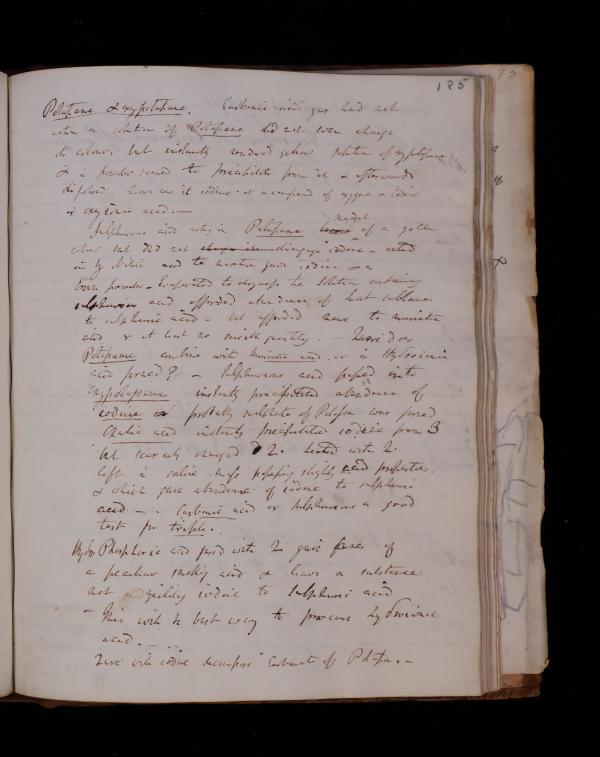 185
Potassane & oxypotassane. Carbonic acid gas had not
when a solution of Potassane did not even change
its colour; but instantly rendered yellow solution of oxypotassane
& a powder seemed to precipitate from it & afterwards
dissolved. Quere was it iodine or a compound of oxygene & iodine
or oxyionic acid. —
Sulphureous acid acting on Potassane made of a golden
colour but did not disengage iodine – acted
on by Nitric acid to
brown powder – Evaporated to dryness the solution containing
sulphureous acid afforded abundance of that substance
to sulphuric acid – but afforded none to muriatic
acid & at least no sensible quantity. – Quere does
Potassane combine with muriatic acid, or is Hydroionic
acid formed? – Sulphureous acid passed into
oxypotassane instantly precipitated abundance of
iodine & probably sulphate of Potassa was formed
Oxalic acid instantly precipitated iodine from 3
but scarcely changed 2. heated with 2
left a saline mass possessing slightly acid properties.
& which gave abundance of iodine to sulphuric
acid – . Carbonic acid or sulphureous a good
test for triple.
Hydro Phosphoric acid fused with 2 gave fumes of
a peculiar smoky acid & leaves a substance
not yielding iodine to sulphuric acid
– This will be best way to procure hydroionic
acid. –
Quere will iodine decompose Carbonate of Potassa. –